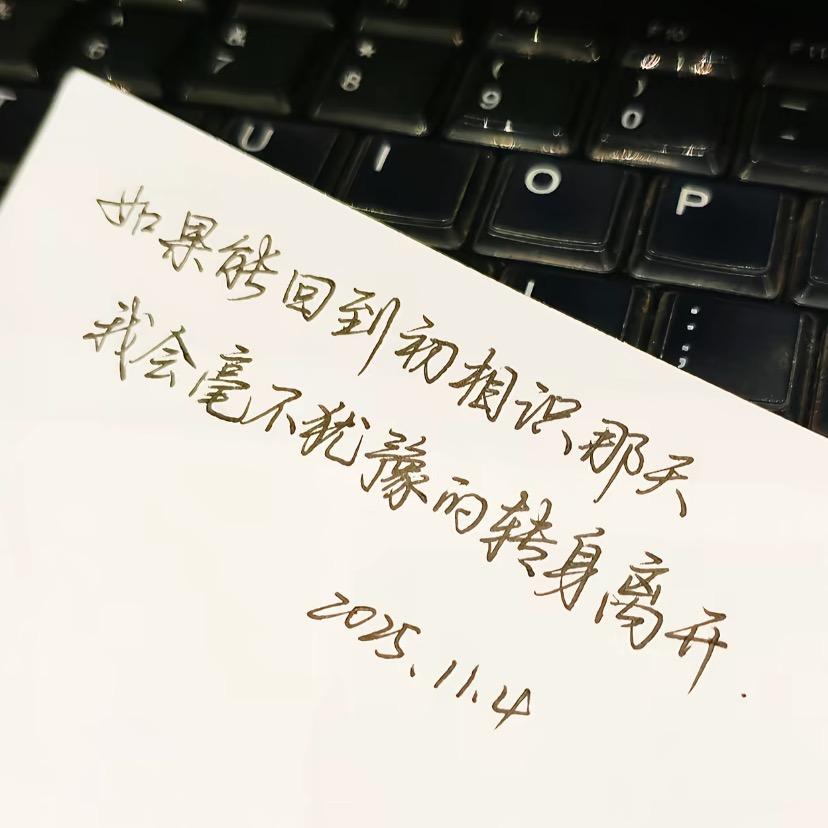 6 & 7 * 8 ( 9 ) 0 -
F10 F11
U I O P
: ;
如果能回到初相识那天
我会毫不犹豫的转身离开.
2025.11.4